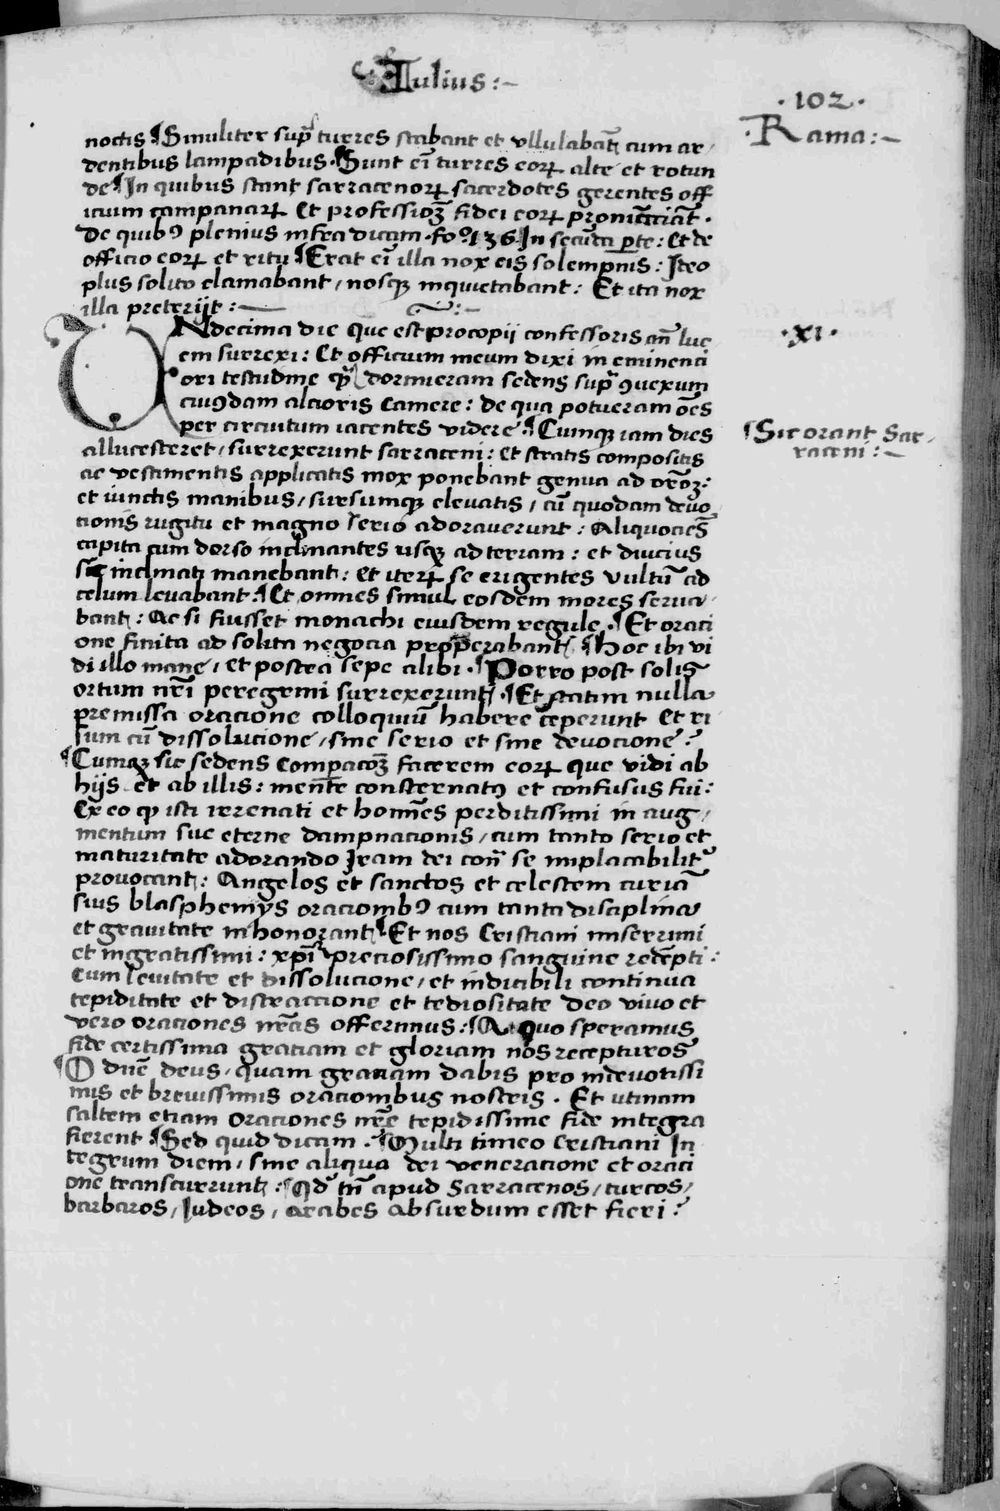 Iulius :~
·102·
·Rama :~
noctis ¶Similiter sup̄ turres stabant et vllulabāt cum ar/
dentibus lampadibus· ¶Sunt ei͞ turres eorꝝ alte et rotun
de ¶In quibus stant sarracenorꝝ sacerdotes gerentes off
icium campanarꝝ Et professioꝫ̄ fidei eorꝝ pronūcciāt·
De quibꝰ plenius infra dicam ·fo·136 In secūda ꝑte: Et de
officio eorꝝ et ritu ¶Erat ei͞ illa nox eis solempnis: Ideo
plus solito clamabant / nosqꝫ inquietabant: Et ita nox
illa preterijt :~
VNdecima die que est procopij confessoris an̄ luc
em surrexi: Et officium meum dixi in eminenci
ori testudine qᷓ dormieram sedens sup̄ ꝯuexum
cuiꝰdam alcioris camere: de qua potueram oēs
per circuitum iacentes videre ¶Cumqꝫ iam dies
allucesteret / surrexerunt sarraceni: et stratis compositis
ac vestimentis applicatis mox ponebant genua ad oroꝫ̄:
et iunctis manibus / sursumqꝫ eleuatis / cū quodam deuo
tionis rugitu et magno serio adorauerunt: Aliquocies̄
capita cum dorso inclinantes usqꝫ ad terram: et diucius
sic inclinati manebant: Et iterꝝ se erigentes vultū ad
celum leuabant ¶Et omnes simul eosdem mores serua/
bant: Ac si fuisset monachi eiusdem regule· ¶Et oraci
one finita ad solita negocia properabant ¶Hoc ibi vi
di illo mane / et postea sepe alibi· ¶Porro post solis
ortum nr̄i peregrini surrexerunt· ¶Et statim nulla
premissa oracione colloquiū habere ceperunt Et ri
sum cū dissolucione / sine serio et sine deuocione:
¶Cumqꝫ sic sedens comparacoꝫ̄ facerem eorꝝ que vidi ab
hijs et ab illis: mente consternatꝰ et confusus fui:
Ex eo qꝫ isti irrenati et homines perditissimi in aug/
mentum sue eterne dampnacionis / cum tanto serio et
maturitate adorando Iram dei con̄ se implacabilit
prouocant: Angelos et sanctos et celestem curiā
suis blasphemijs oracionibꝰ cum tanta disciplina
et grauitate inhonorant ¶Et nos Cristiani miserrimi
et ingratissimi: xp̄i preciosissimo sanguine redempti:
Cum leuitate et dissolucione / et indicibili continua
tepiditate et distraccione et tediositate deo viuo et
vero oraciones nr̄as offerimus: ¶A quo speramus
fide certissima graciam et gloriam nos recepturos
¶O dn̄e deus / quam graciam dabis pro indeuotissi
mis et breuissimis oracionibus nostris· Et utinam
saltem etiam oraciones nr̄e tepidissime fide integra
fierent ¶Sed quid dicam· ¶Multi timeo cristiani In
tegrum diem / sine aliqua dei veneracione et oraci
one transcurrunt: ¶Qd̄ tn̄ apud sarracenos / turcos /
barbaros / Iudeos / arabes absurdum esset fieri:
·xi·
¶Sic orant Sar/
raceni :~